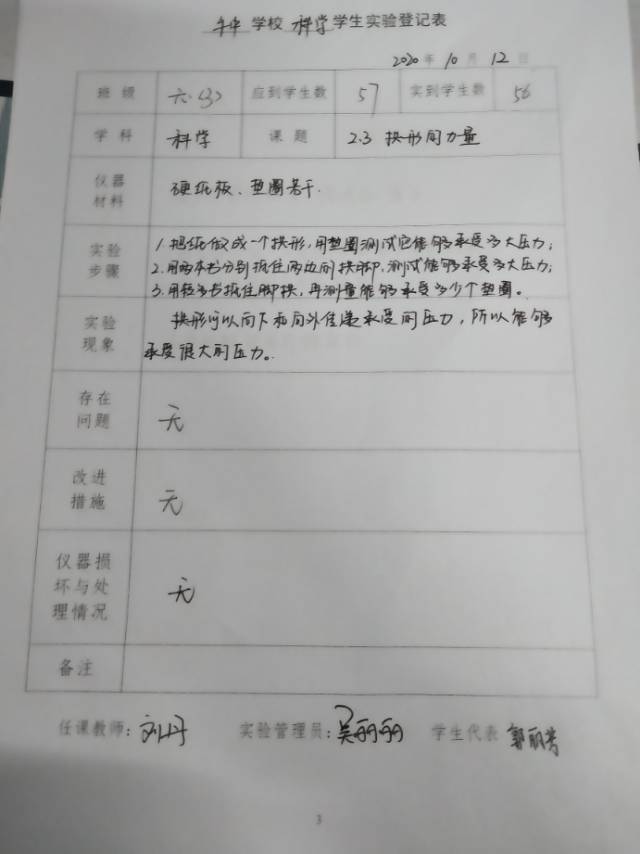 牛华 学校 科学 学生实验登记表
2020 年 10 月 12 日
班级 六.(3) 应到学生数 57 实到学生数 56
学科 科学 课题 2.3 拱形的力量
仪器材料 硬纸板、垫圈若干.
实验步骤 1.把纸做成一个拱形,用垫圈测试它能够承受多大压力;
2.用两本书分别抵住两边的拱脚,测试能够承受多大压力;
3.用较多书抵住脚拱,再测量能够承受多少个垫圈。
实验现象 拱形可以向下和向外传递承受的压力,所以能够
承受很大的压力。
存在问题 无
改进措施 无
仪器损坏与处理情况 无
备注
任课教师: 刘丹 实验管理员: 吴丽丽 学生代表 郭丽芳
3